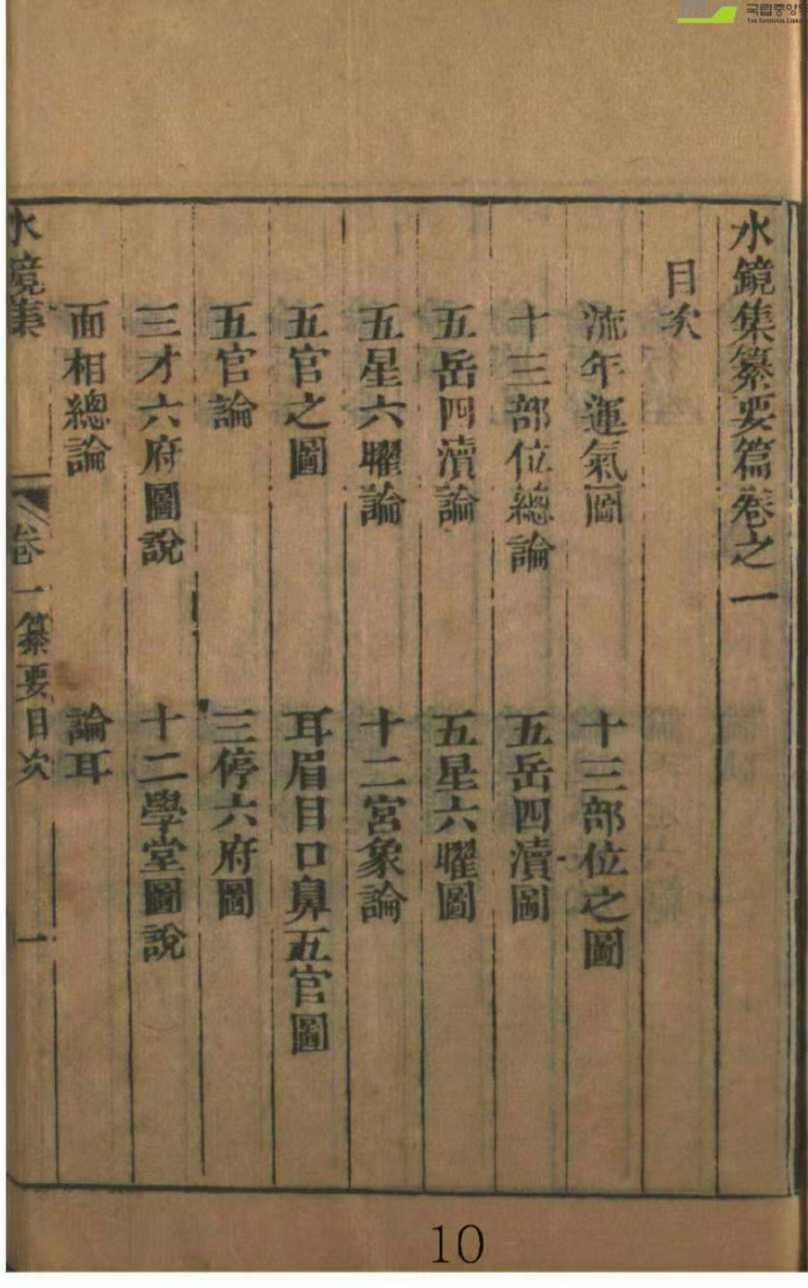 水鏡集纂要篇卷之一
目次
流年運氣圖
十三部位之圖
十三部位總論
五岳四瀆圖
五岳四瀆論
五星六曜圖
五星六曜論
十二宮象論
五官之圖
耳眉目口鼻五官圖
五官論
三停六府圖
三才六府圖說
十二學堂圖說
面相總論
論耳
水鏡集 卷一纂要目次 一
국립중앙
10